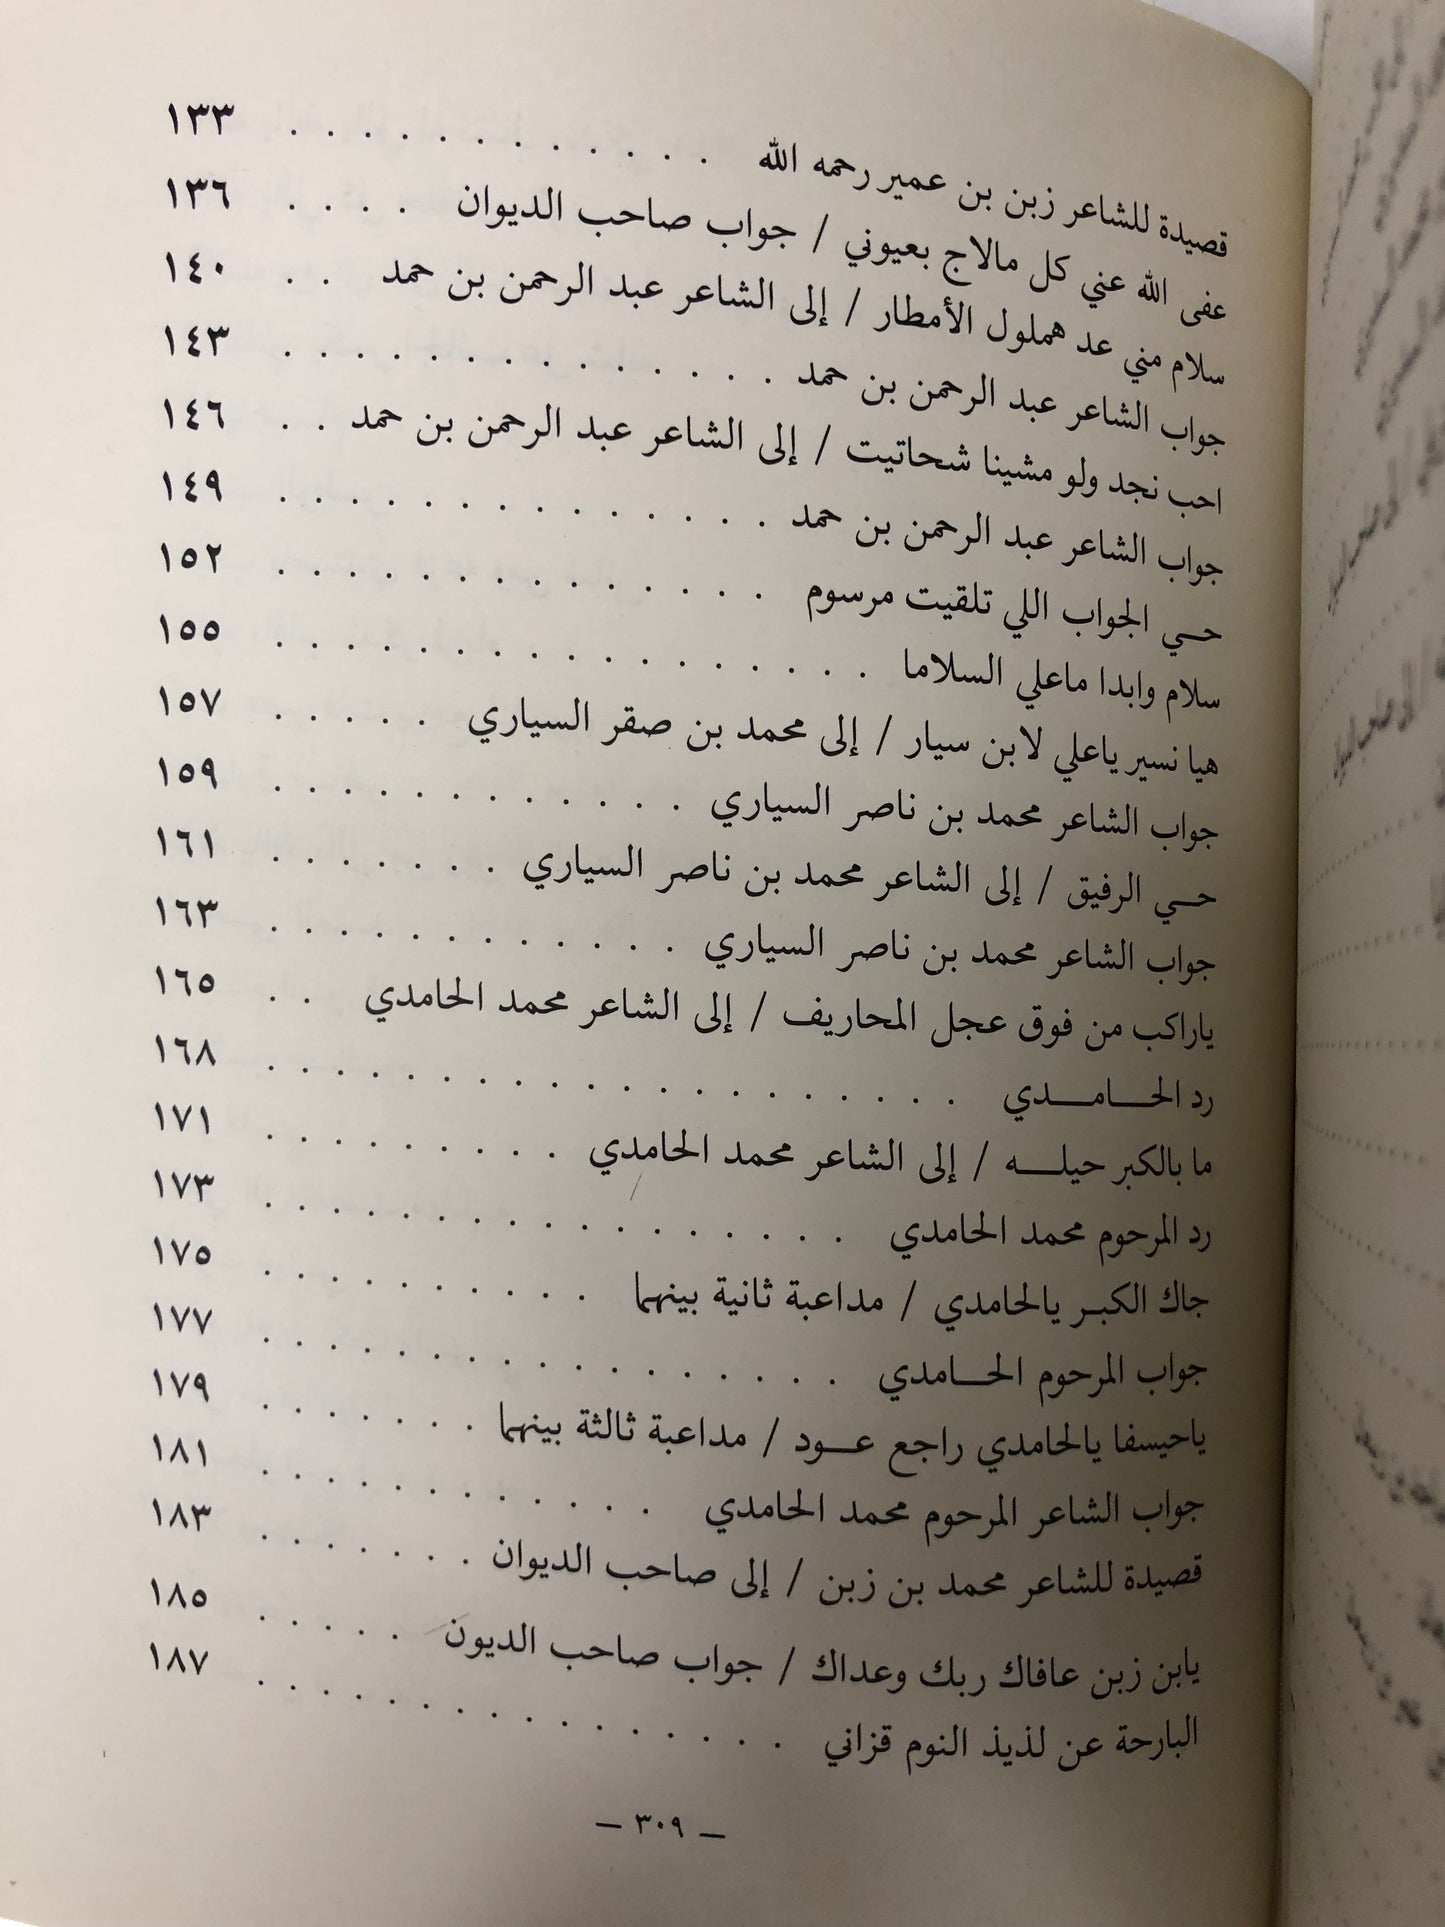 قصيدة للشاعر زبن بن عمير رحمه الله . . . . . . . . . . . . ١٣٣
عفى الله عني كل مالاج بعيوني / جواب صاحب الديوان . . . . ١٣٦
سلام مني عد هملول الأمطار / إلى الشاعر عبد الرحمن بن حمد . . ١٤٠
جواب الشاعر عبد الرحمن بن حمد . . . . . . . . . . . . . . ١٤٣
احب نجد ولو مشينا شحاتيت / إلى الشاعر عبد الرحمن بن حمد . . ١٤٦
جواب الشاعر عبد الرحمن بن حمد . . . . . . . . . . . . . . ١٤٩
حي الجواب اللي تلقيت مرسوم . . . . . . . . . . . . . . ١٥٢
سلام وابدا ماعلي السلاما . . . . . . . . . . . . . . . . . ١٥٥
هيا نسير ياعلي لابن سيار / إلى محمد بن صقر السياري . . . . . ١٥٧
جواب الشاعر محمد بن ناصر السياري . . . . . . . . . . . . ١٥٩
حي الرفيق / إلى الشاعر محمد بن ناصر السياري . . . . . . . ١٦١
جواب الشاعر محمد بن ناصر السياري . . . . . . . . . . . . ١٦٣
ياراكب من فوق عجل المحاريف / إلى الشاعر محمد الحامدي . . ١٦٥
رد الحامدي . . . . . . . . . . . . . . . . . . . . ١٦٨
ما بالكبر حيله / إلى الشاعر محمد الحامدي . . . . . . . . . ١٧١
رد المرحوم محمد الحامدي . . . . . . . . . . . . . . . . . ١٧٣
جاك الكبر يالحامدي / مداعبة ثانية بينهما . . . . . . . . . . ١٧٥
جواب المرحوم الحامدي . . . . . . . . . . . . . . . . . ١٧٧
ياحيسفا يالحامدي راجع عود / مداعبة ثالثة بينهما . . . . . . . ١٧٩
جواب الشاعر المرحوم محمد الحامدي . . . . . . . . . . . . ١٨١
قصيدة للشاعر محمد بن زبن / إلى صاحب الديوان . . . . . . . ١٨٣
يابن زبن عافاك ربك وعداك / جواب صاحب الديون . . . . . ١٨٥
البارحة عن لذيذ النوم قزاني . . . . . . . . . . . . . . . . ١٨٧
— ٣٠٩ —